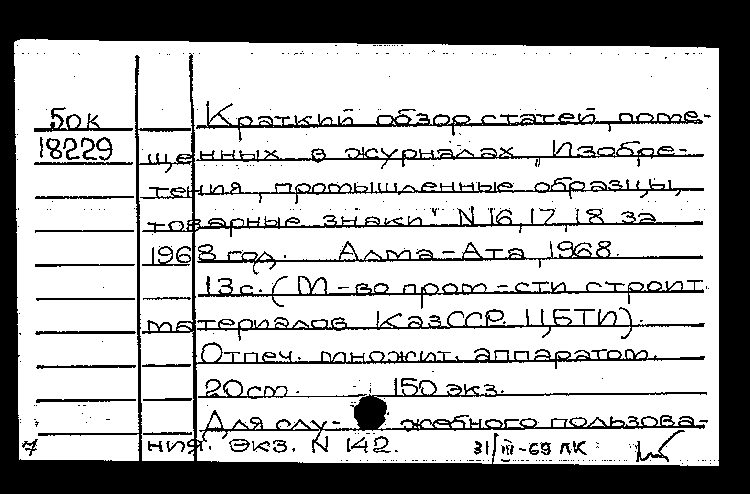 Бок Краткий обзор статей, поме-
18229 щенных в журналах „Изобре-
тения, промышленные образцы,
товарные знаки" N 16, 17, 18 за
1968 год. Алма-Ата, 1968.
13 с. (М-во пром-сти строит.
материалов КазССР. ЦБТИ).
Отпеч. множит. аппаратом.
20 см. 150 экз.
Для слу- жебного пользова-
ния. Экз. N 142. 31/III-69 ЛК